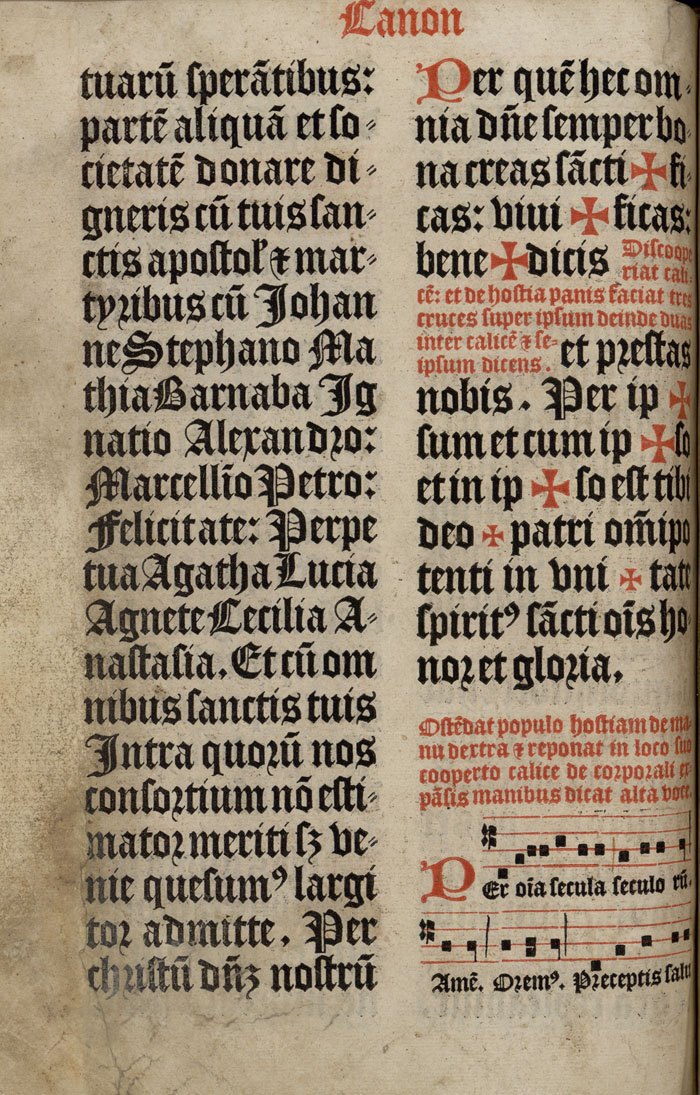 Canon
tuarū sperātibus:
partē aliquā et so⸗
cietatē donare di⸗
gneris cū tuis san⸗
ctis apostoł ⁊ mar⸗
tyribus cū Johan
ne Stephano Ma
thia Barnaba Ig
natio Alexandro:
Marcellīo Petro:
Felicitate: Perpe
tua Agatha Lucia
Agnete Cecilia A⸗
nastasia. Et cū om
nibus sanctis tuis
Intra quorū nos
consortium nō esti⸗
mator meriti sꝫ ve⸗
nie quesumꝰ largi
tor admitte. Per
christū dn̄ꝫ nostrū
Per quē hec om⸗
nia dn̄e semper bo
na creas sācti ✠ fi⸗
cas: viui ✠ ficas:
bene ✠ dicis Discoope
riat cali⸗
cē: et de hostia panis faciat tres
cruces super ipsum deinde duas
inter calicē ⁊ se⸗
ipsum dicens. et prestas
nobis. Per ip ✠
sum et cum ip ✠ so
et in ip ✠ so est tibi
deo ✠ patri om̄ipo
tenti in vni ✠ tate
spiritꝰ sācti oīs ho⸗
nor et gloria.
Ostēdat populo hostiam de ma⸗
nu dextra ⁊ reponat in loco suo
cooperto calice de corporali ex
pāsis manibus dicat alta voce.
PEr oīa secula seculo rū.
Amē. Oremꝰ. Preceptis salu